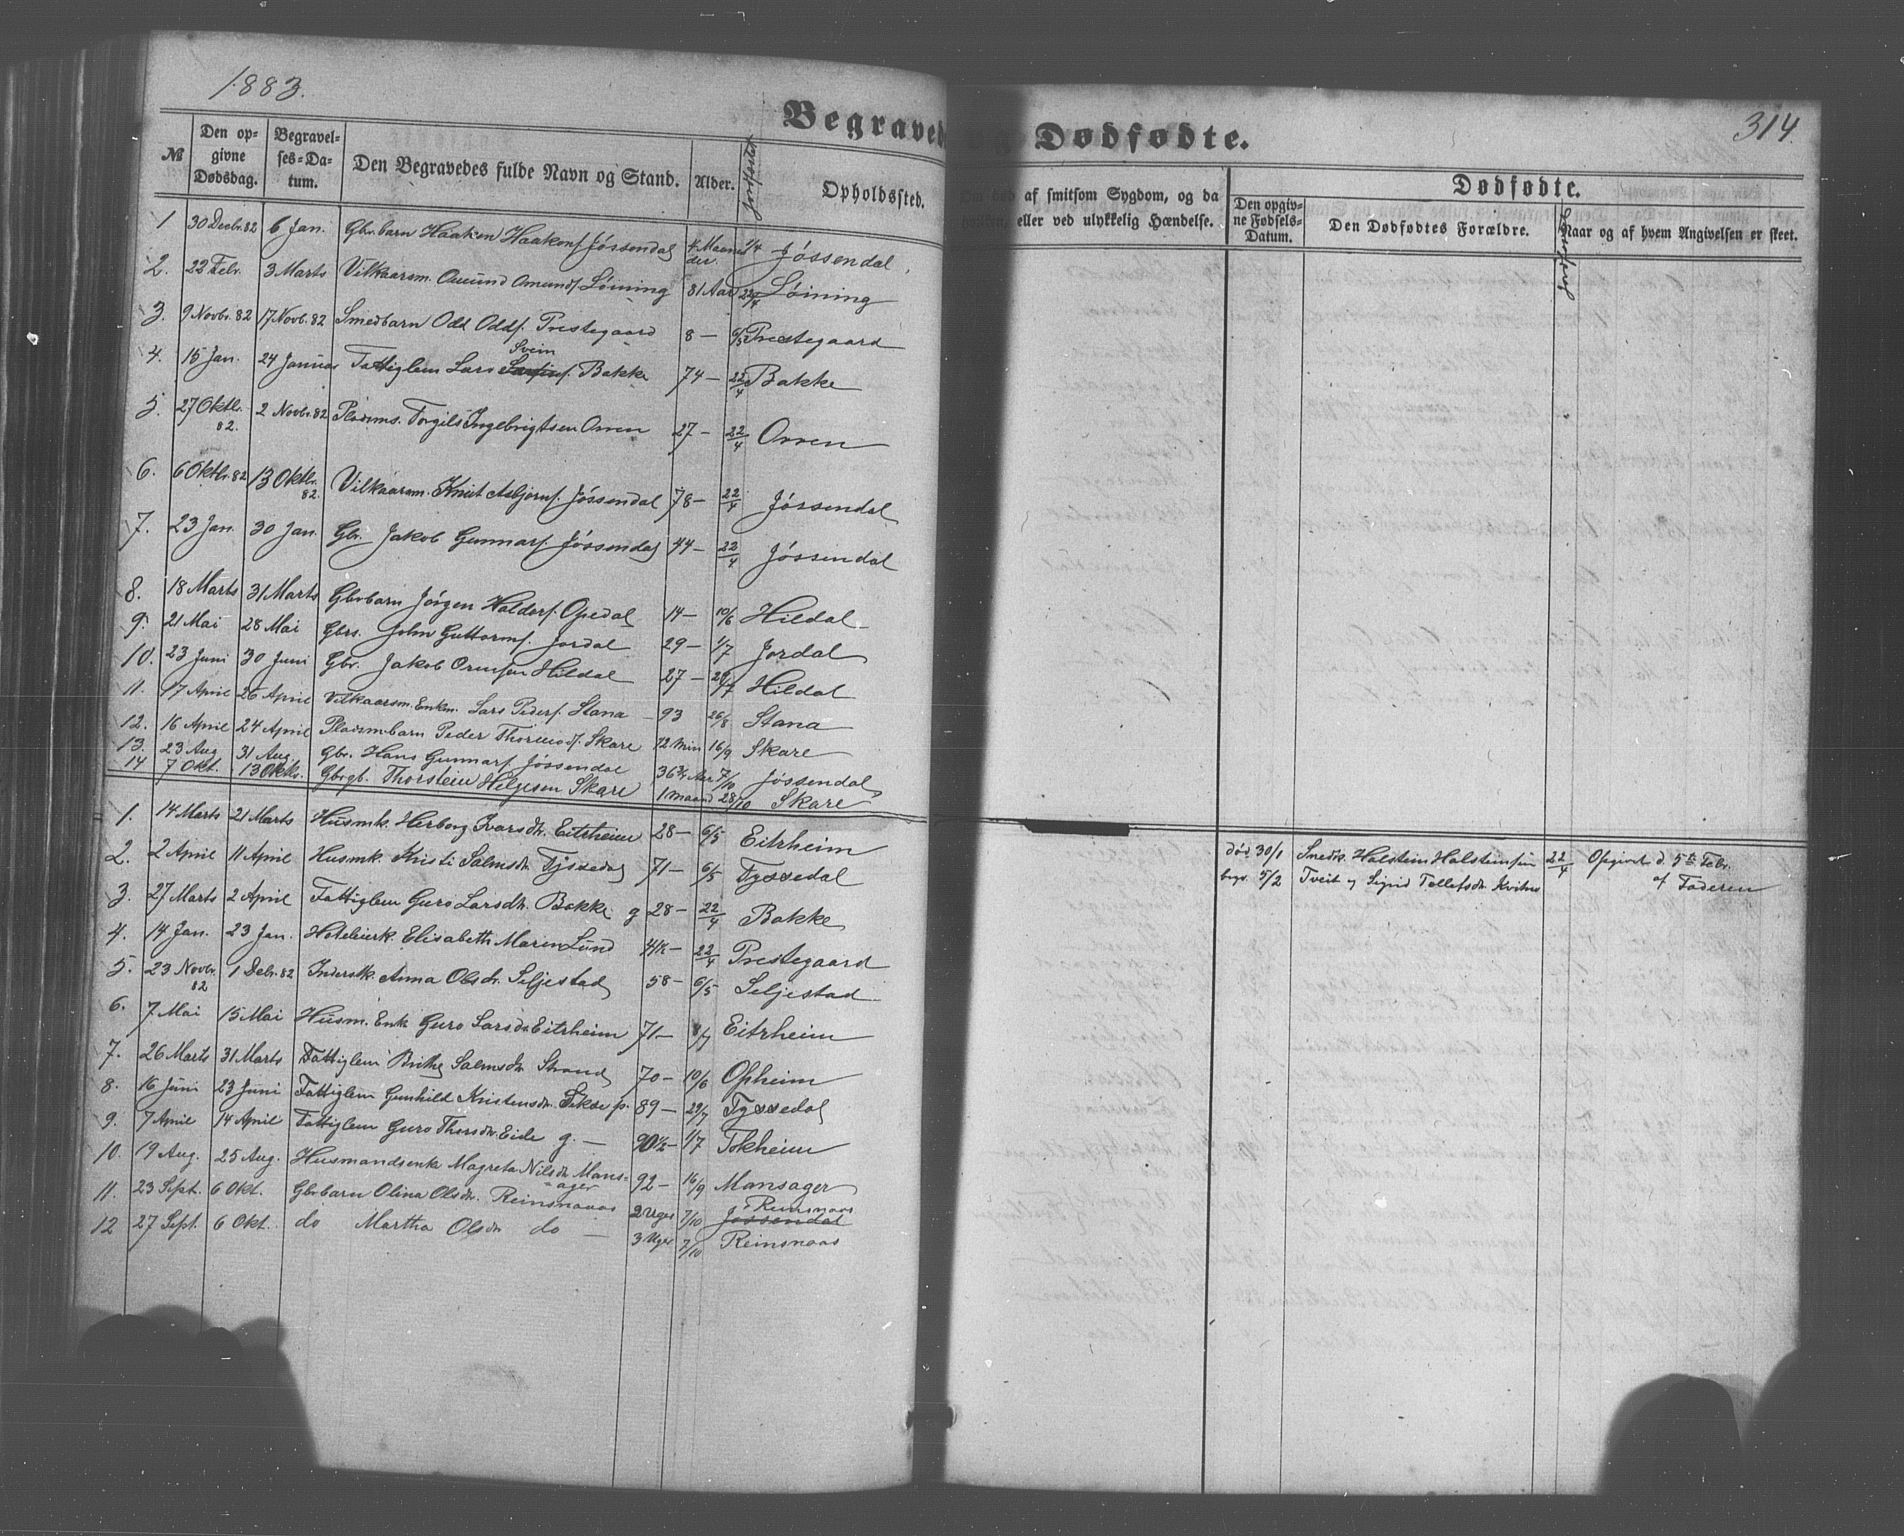 1883.
Begravede Dødfødte.
314.
№ Den opgivne Dødsdag. Begravelses-Datum. Den Begravedes fulde Navn og Stand. Alder. Jordfæstet Opholdssted. død af smitsom Sygdom, og da eller ved ulykkelig Hændelse.
Dødfødte.
Den opgivne Fødsels-Datum. Den Dødfødtes Forældre. Naar og af hvem Angivelsen er skeet.
1 30 Decbr. 82 6 Jan. Gbr.barn Haaken Haakens. Jøssendal 4 Maaneder. 1/4 Jøssendal
2. 22 Febr. 3 Marts Vilkaarsm. Omund Omunds. Løining 81 Aar 22/4 Løining
3. 9 Novbr. 82 17 Novb. 82 Smedbarn Odd Odds. Prestegaard 8 — 6/5 Prestegaard
4. 15 Jan. 24 Januar Fattiglem Lars Svein s. Bakke 74 — 22/4 Bakke
5. 27 Oktbr. 82. 2 Novbr. 82 Pladsms. Torgils Ingebrigtsen Orren 27 — 22/4 Orren
6. 6 Oktbr. 82 13 Oktbr. 82. Vilkaarsm. Knut Asbjørns. Jøssendal 78 — 22/4 Jøssendal
7. 23 Jan. 30 Jan. Gbr. Jakob Gunnars. Jøssendal 44 — 22/4 Jøssendal
8. 18 Marts 31 Marts Gbrbarn Jørgen Haldors. Opedal 14 — 10/6 Hildal
9. 21 Mai 28 Mai Gbrs. John Guttorms. Jordal 29 — 1/7 Jordal
10. 23 Juni 30 Juni Gbr. Jakob Ormsen Hildal 27 — 29/7 Hildal
11. 17 April 26 April Vilkaarsm. Enkm. Lars Peders. Stana 93 26/8 Stana
12. 16 April 24 April Pladsmbarn Peder Thormods. Skare 12 Min 16/9 Skare
13. 23 Aug 31 Aug. Gbr. Hans Gunnars. Jøssendal 36 3/4 Aar 7/10 Jøssendal
14 7 Okt. 13 Oktbr. Gbrgb. Thorstein Helgesen Skare 1 Maaned 28/10 Skare
1. 14 Marts 21 Marts Husmk. Herborg Ivarsdtr. Eitrheim 28 — 6/5 Eitrheim
død 30/1 Smeds. Halstein Halsteinsøn 22/4 Opgivet d. 5te Febr.
begr. 5/2 Tveit og Sigrid Tollefsdtr. Kvitnes af Faderen
2. 2 April 11 April Husmk Kristi Salmsdtr. Tyssedal 71 — 6/5 Tyssedal
3. 27 Marts 2 April Fattiglem Guro Larsdtr. Bakke g 28 — 22/4 Bakke
4. 14 Jan. 23 Jan. Hoteleierk. Elisabeth Marie Lund — 22/4 Prestegaard
5. 23 Novbr. 82 1 Debr. 82 Inderstk. Anna Olsdtr. Seljestad 58 — 6/5 Seljestad
6. 7 Mai 15 Mai Husm. Enk Guro Larsdtr Eitrheim 71 — 8/7 Eitrheim
7. 26 Marts 31 Marts Fattiglem Brithe Salmsdtr. Strand 70 — 10/6 Opheim
8. 16 Juni 23 Juni Fattiglem Gunhild Kristensdtr. 89 — 29/7 Tyssedal
9. 7 April 14 April Fattiglem Guro Thorsdtr Eide g. — 90 1/2 — 1/7 Tokheim
10. 19 Aug. 25 Aug. Husmandsenk Magreta Nilsdtr. Mansager 92 — 16/9 Mansager
11. 23 Sept. 6 Okt. Gbrbarn Olina Olsdtr. Reinsnaaas 2 Uger 7/10 Jøssendal Reinsnaas
12 27 Sept. 6 Okt. do Martha Olsdtr do — 3 Uger 7/10 Reinsnaas